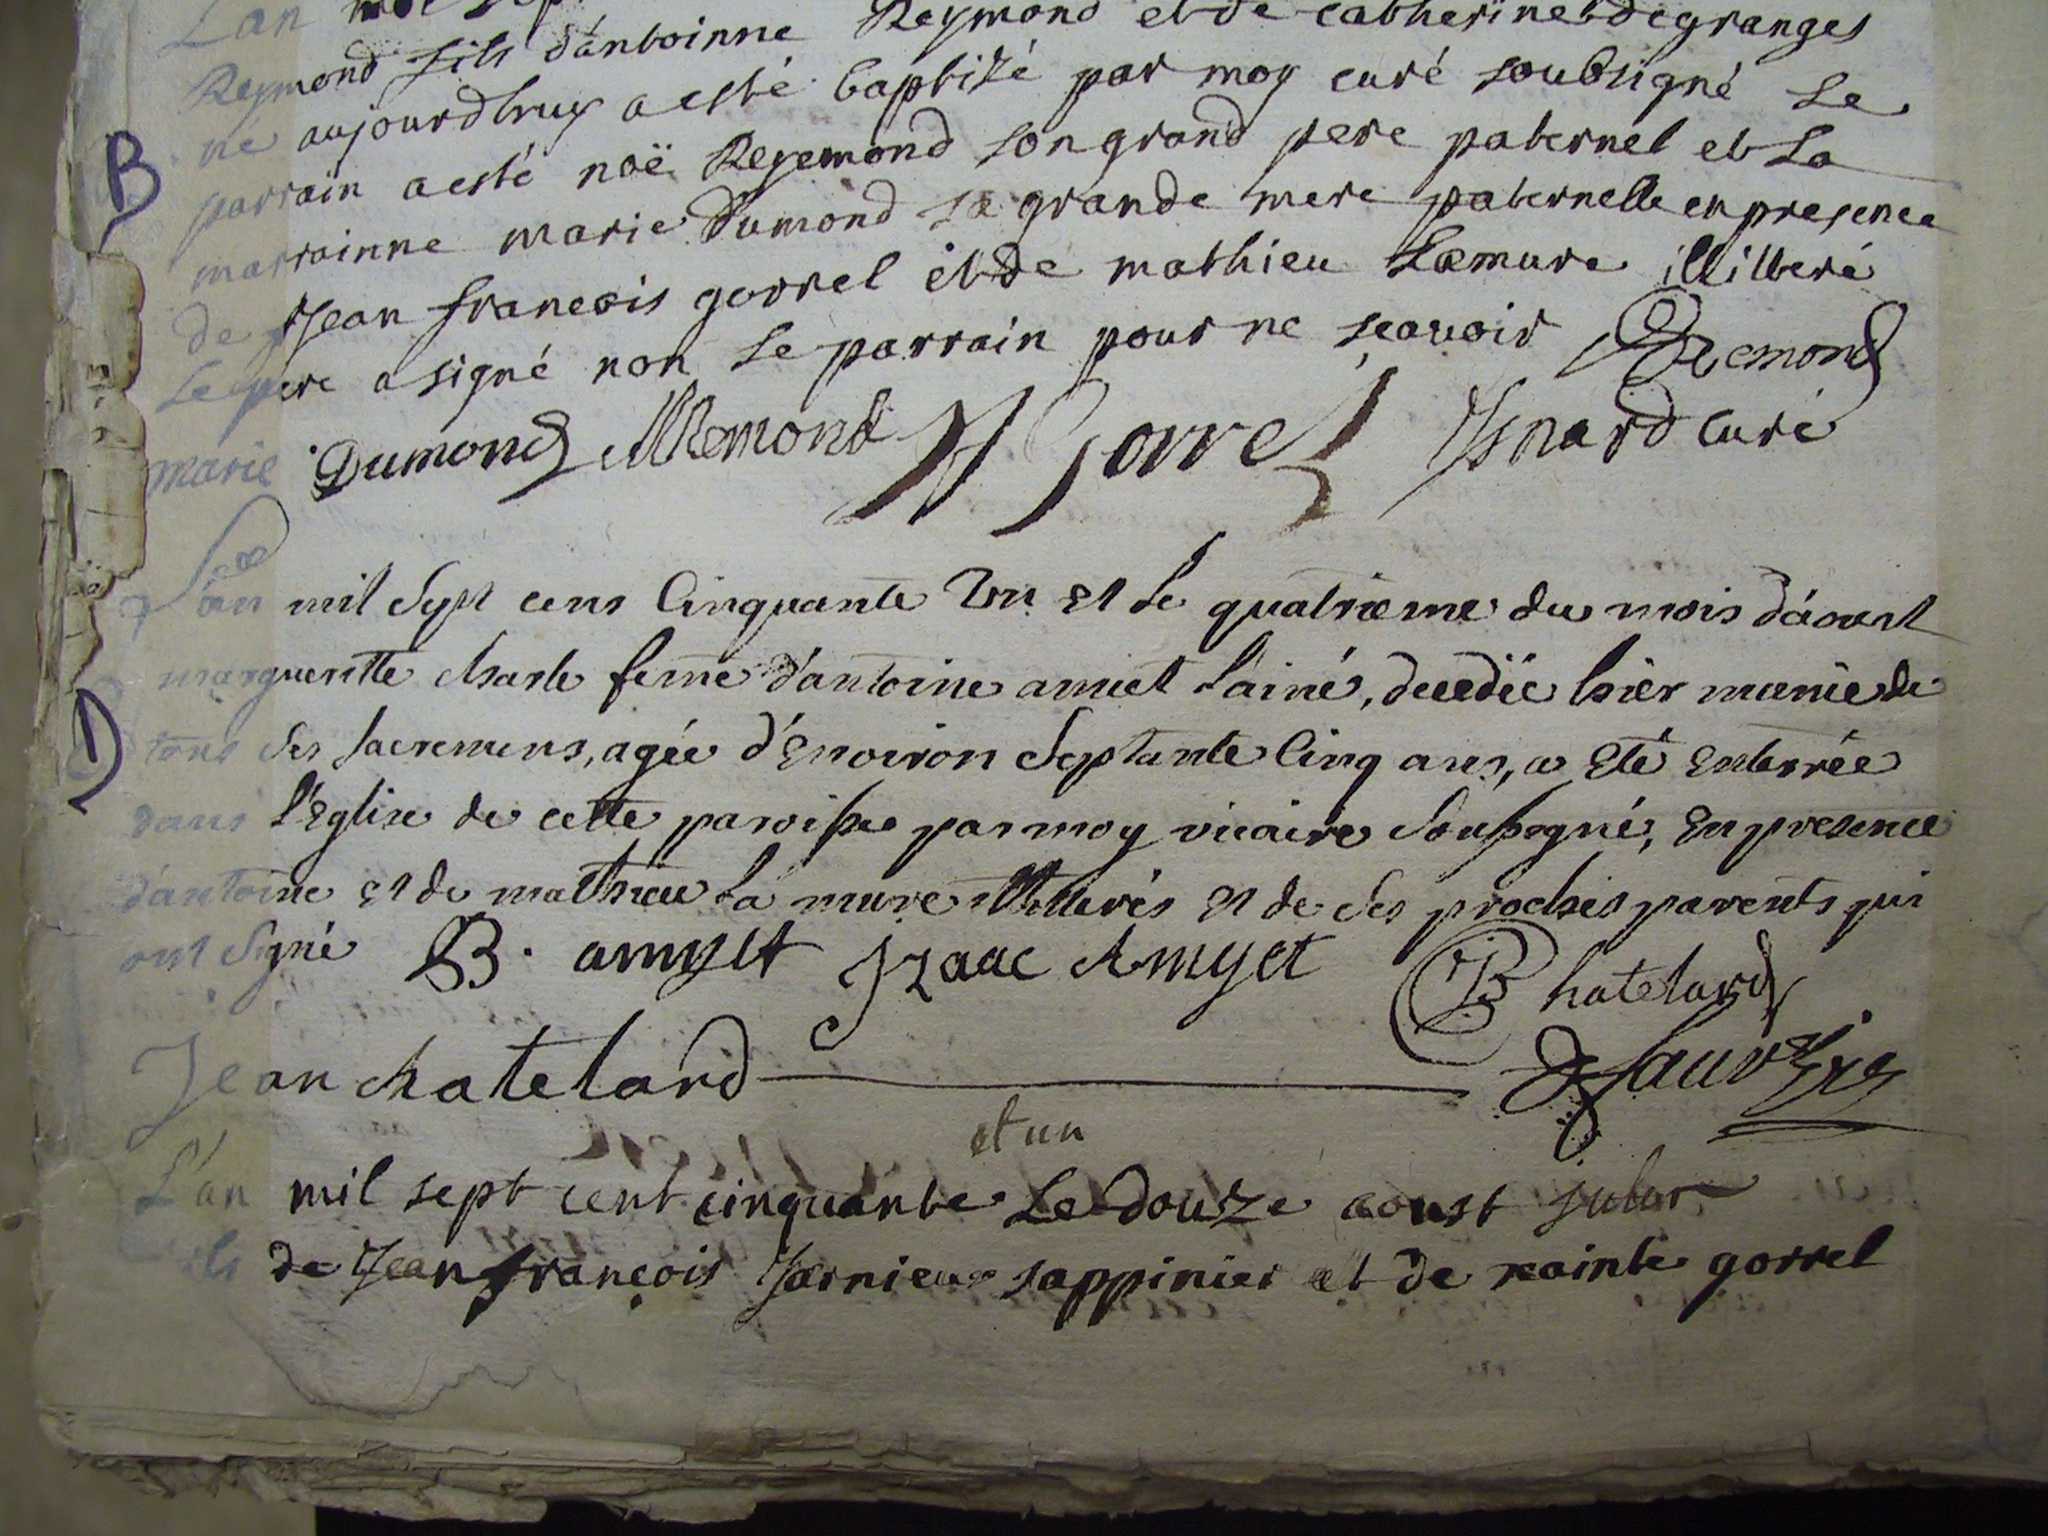 L'an mil sep
Reymond fils d'antoinne Reymond et de catherine degranges
né aujourdhuy a esté baptizé par moy curé soubsigné le
B
parrain a esté noë Reyemond son grand pere paternel et la
marrainne marie Dumond sa grande mere paternelle en presence
de Jean francois gorrel et de mathieu Lamure illiteré
le pere a signé non le parrain pour ne scavoir Remond
marie Dumond Remond Gorrel Isnard curé
L'an mil Sept cens Cinquante Un et Le quatrieme du mois d'áoust
margueritte charle femme d'antoine amiet L'ainé, decedée hier munie de
D
tous Ses Sacremens, agée d'Environ Septante Cinq ans, a Eté Enterrée
dans l'Eglise de cette paroisse par moy vicaire Soussigné, En presence
d'antoine Et de mathieu La mure illiterés Et de Ses proches parents qui
ont Signé B. amyet Izaac Amyet Chatelard
Jean chatelard
et un
L'an mil sept cent cinquante Le douze aoust
fils de Jean françois Jarnieux sappinier et de xainte gorrel